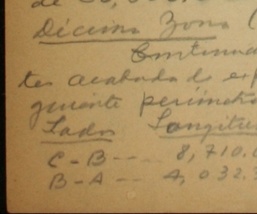 de
Décima Zona (
Continua
tes acabada d exp
guiente perímetro
Lados Longitu
C-B--- 8,710.0
B-A -- 4,032.3